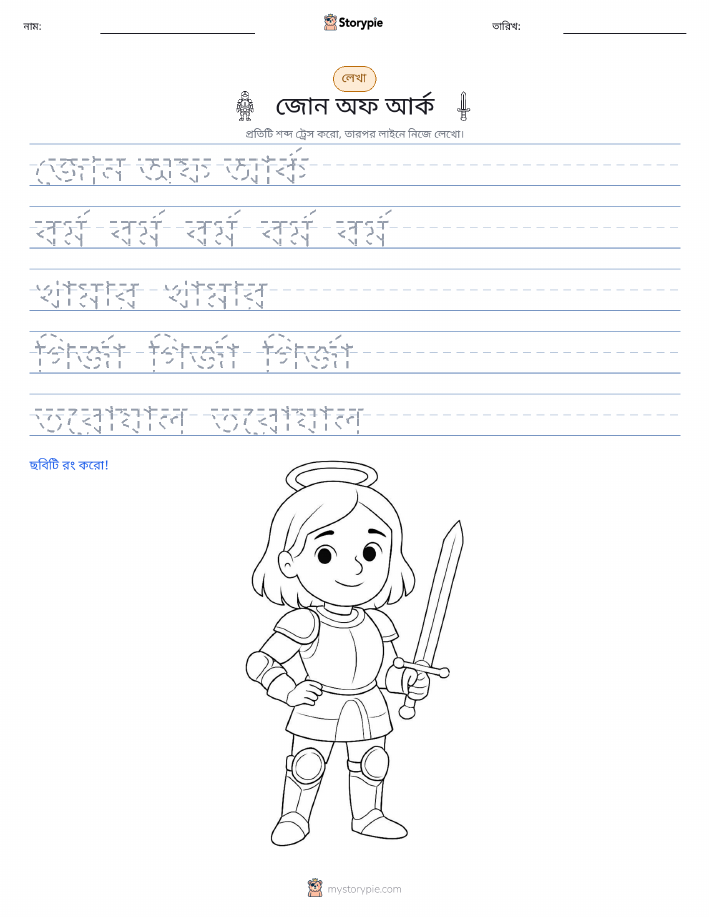 নাম:
Storypie
তারিখ:
লেখা
জোন অফ আর্ক
প্রতিটি শব্দ ট্রেস করো, তারপর লাইনে নিজে লেখো।
জোন অফ আর্ক
বর্ম বর্ম বর্ম বর্ম বর্ম
খামার খামার
গির্জা গির্জা গির্জা
তরোয়াল তরোয়াল
ছবিটি রং করো!
mystorypie.com